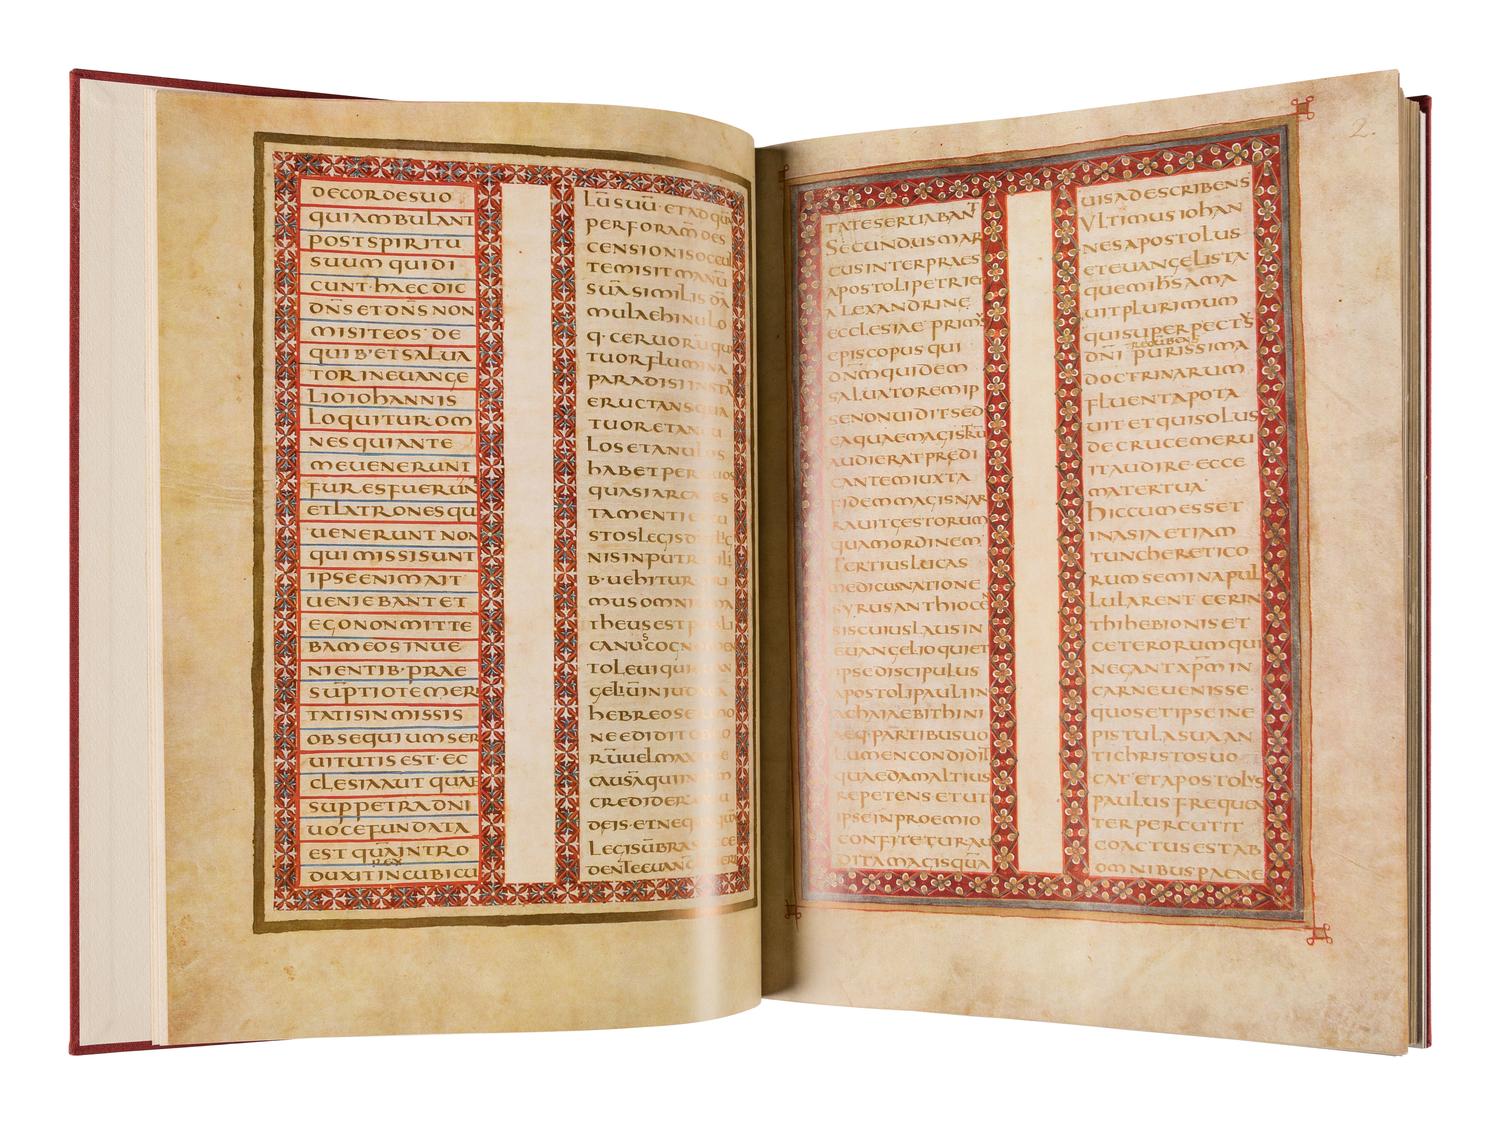 DECORDESUO
QUIAMBULANT
POSTSPIRITU
SUUM QUIDI
CUNT·HAEC DIC
DN̄S ET DN̄S NON
MISIT EOS· DE
QUIB·ET SALUA
TOR IN EUANGE
LIO IOHANNIS
LOQUITUR OM
NES QUI ANTE
ME UENERUNT
FURES FUERUN̄
ET LATRONES QUI
UENERUNT NON
QUI MISSI SUNT
IPSE ENIM AIT
UENIEBANT ET
EGO NON MITTE
BAM EOS IN UE
NIENTIB· PRAE
SUP̄TIO TEMERI
TATIS IN MISSIS
OBSEQUIUM SER
UITUTIS EST· EC
CLESIA AUT QUAE
SUP PETRA DN̄I
UOCE FUNDATA
EST QUĀ INTRO
REX
DUXIT IN CUBICU
LŪ SUŪ· ET AD QUĀ
PER FORAM̄ DES
CENSIONIS OCCUL
TE MISIT MANŪ
SUĀ SIMILIS DĀ
MULAE HINULO
Q· CERUORŪ QUA
TUOR FLUMINA
PARADISI INSTAR
ERUCTANS QUA
TUOR ET AN
LOS ET ANULOS
HABET PER QUOS
QUASI ARCA
TAMENTI
STOS LEGIS DN̄I
NIS IN PUTRIBILI
B· UEHITUR
MUS OMNIUM
THEUS EST PUBLI
S
CANUS COGNOMEN
TO LEUI QUI
GELIŪ IN IUDAEA
HEBREO SERMO
NE EDIDIT OB
RŪ UEL MAXIME
CAUSĀ QUI IN
CREDIDERANT
DEIS· ET NEQ·
LEGIS ŪBRA
DENTE EUANGELII
TATE SERUABANT
SECUNDUS MAR
CUS INTERPRAES
APOSTOLI PETRI ET
ALEXANDRINE
ECCLESIAE PRIMUS
EPISCOPUS QUI
DNM̄ QUIDEM
SALUATOREM IP
SE NON UIDIT SED
EA QUAE MAGISTRŪ
AUDIERAT PREDI
CANTEM IUXTA
FIDEM MAGIS NAR
RAUIT GESTORUM
QUAM ORDINEM
TERTIUS LUCAS
MEDICUS NATIONE
SYRUS ANTHIOCEN̄
SIS CUIUS LAUS IN
EUANGELIO QUI ET
IPSE DISCIPULUS
APOSTOLI PAULI IN
ACHAIAE BITHINI
AEQ· PARTIBUS UO
LUMEN CONDIDIT
QUAEDAM ALTIUS
REPETENS ET UT
IPSE IN PROEMIO
CONFITETUR AU
DITA MAGIS QUĀ
2.
UISA DESCRIBENS
ULTIMUS IOHAN
NES APOSTOLUS
ET EUANGELISTA·
QUEM IHS̄ AMA
UIT PLURIMUM
QUI SUPER PECTUS
RECUBENS
DN̄I PURISSIMA
DOCTRINARUM
FLUENTA POTA
UIT ET QUI SOLUS
DE CRUCE MERU
IT AUDIRE· ECCE
MATER TUA·
HIC CUM ESSET
IN ASIA ET IAM
TUNC HERETICO
RUM SEMINA PUL
LULARENT CERIN
THI HEBIONIS ET
CETERORUM QUI
NEGANT XP̄M IN
CARNE UENISSE·
QUOS ET IPSE IN E
PISTULA SUA AN
TICHRISTOS UO
CAT· ET APOSTOLUS
PAULUS FREQUEN̄
TER PERCUTIT
COACTUS EST AB
OMNIBUS PAENE